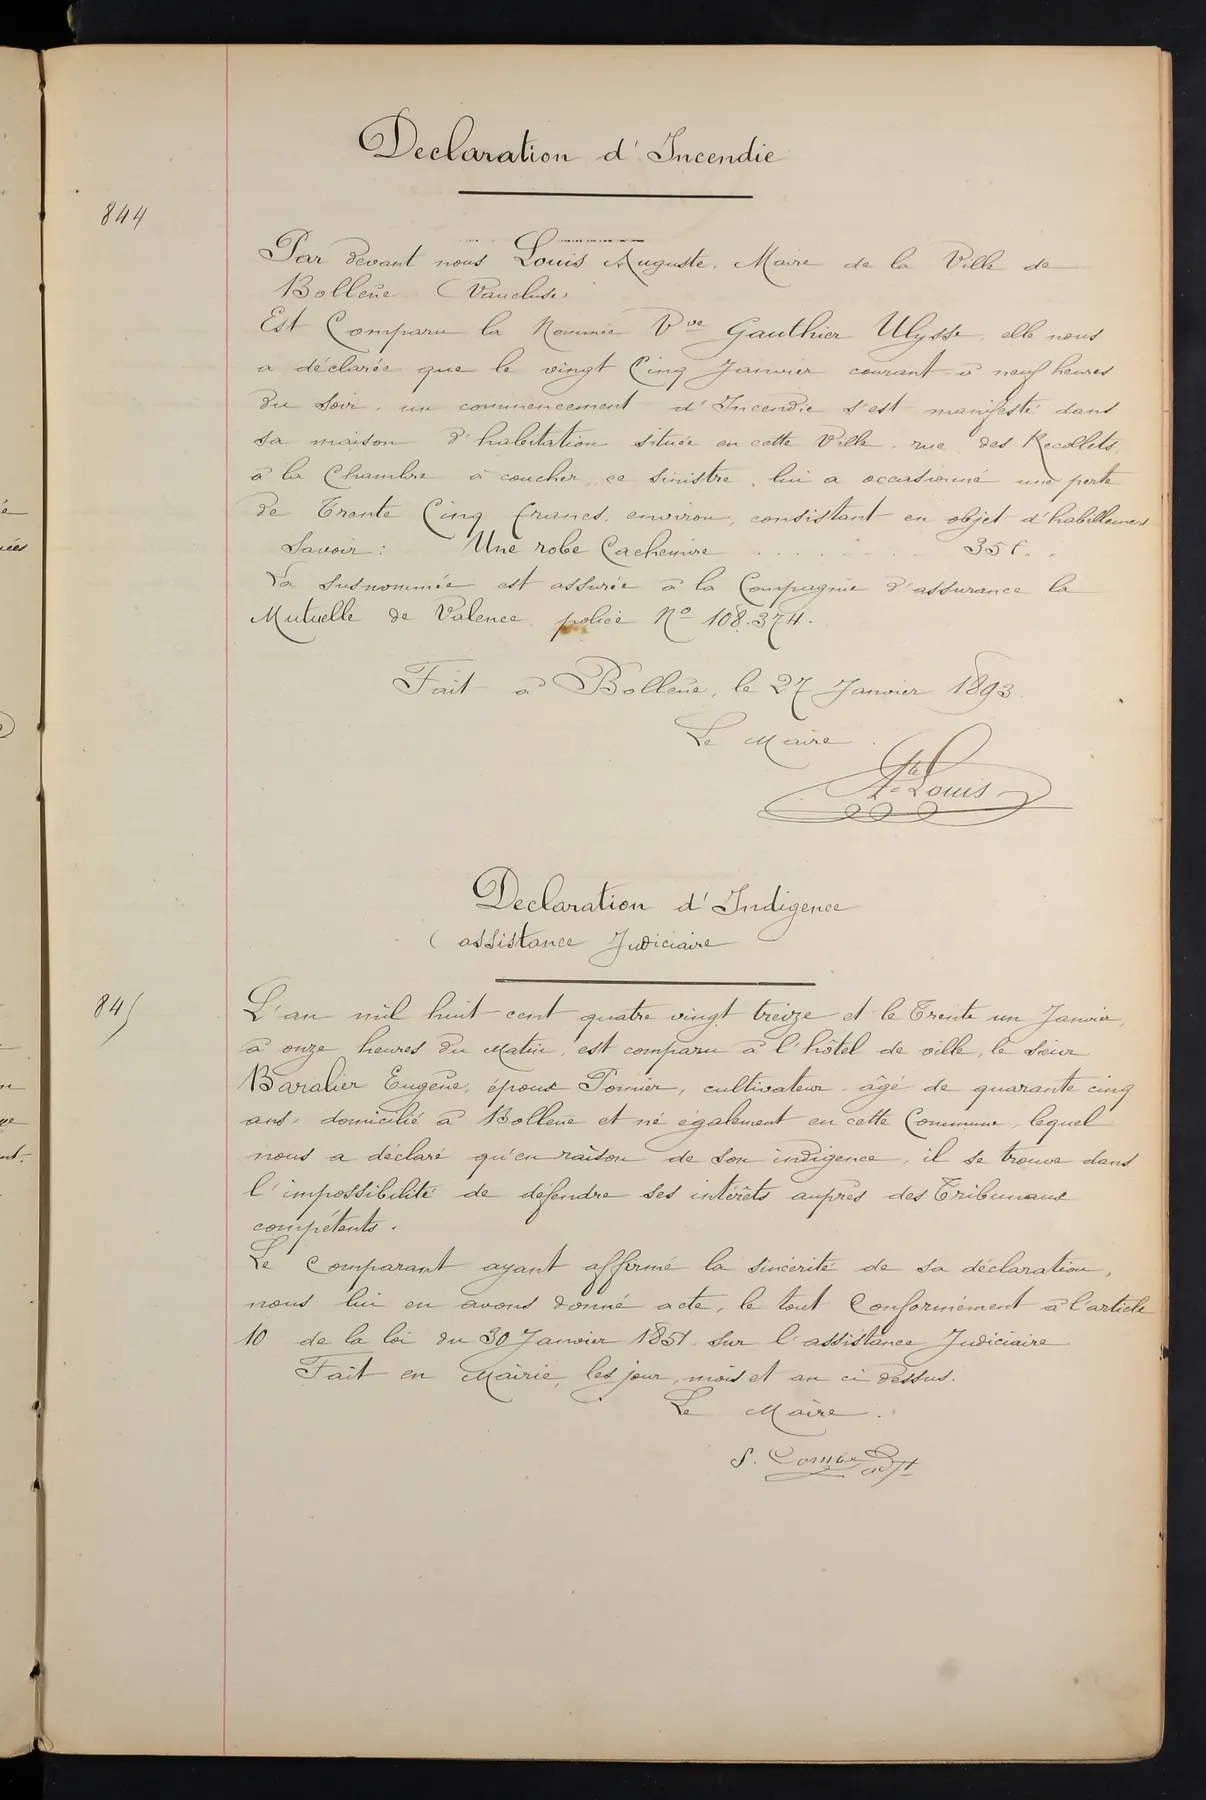 Declaration d'Incendie
844
Par devant nous Louis Auguste, Maire de la Ville de
Bollène (Vaucluse)
Est Comparu la Nommée Vve Gauthier Ulysse, elle nous
a déclarée que le vingt Cinq Janvier courant à neuf heures
du Soir, un commencement d'Incendie s'est manifesté dans
sa maison d'habitation située en cette Ville, rue des Recollets,
à la Chambre à coucher, ce Sinistre, lui a occasionné une perte
de Trente Cinq francs, environ, consistant en objet d'habillement
Savoir : Une robe Cachemire . . . . . . . . 35 f. .
La Susnommée est assurée à la Compagnie d'assurance la
Mutuelle de Valence, police No 108.374.
Fait à Bollène, le 27 Janvier 1893.
Le Maire.
Ate Louis
Declaration d'Indigence
(assistance Judiciaire
845
L'an mil huit cent quatre vingt treize et le Trente un Janvier,
à onze heures du Matin, est comparu à l'hôtel de ville, le Sieur
Baralier Eugène, époux Pomier, cultivateur, âgé de quarante cinq
ans, domicilié à Bollène et né également en cette Commune, lequel
nous a déclaré qu'en raison de son indigence, il se trouve dans
l'impossibilité de défendre ses intérêts auprès des Tribunaux
compétents.
Le Comparant ayant affirmé la sincérité de sa déclaration,
nous lui en avons donné acte, le tout Conformément à l'article
10 de la loi du 30 Janvier 1851, sur l'assistance Judiciaire
Fait en Mairie, les jour, mois et an ci dessus.
Le Maire.
adjt